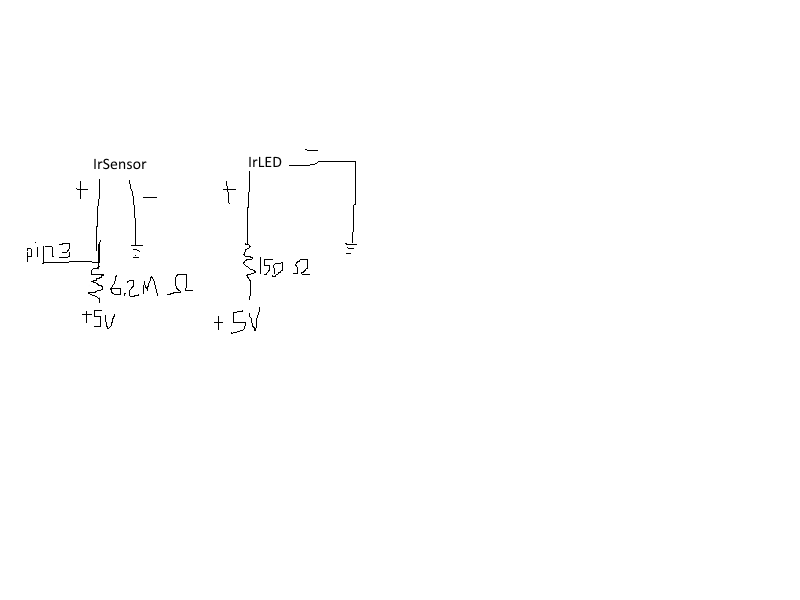 IrSensor
+ -
pin3
6.2M Ω
+5V
IrLED
-
+
150 Ω
+5V